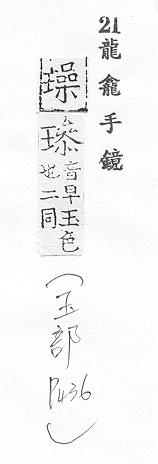 21 龍龕手鏡
璪
音早玉色
也二同
(玉部 P.436)